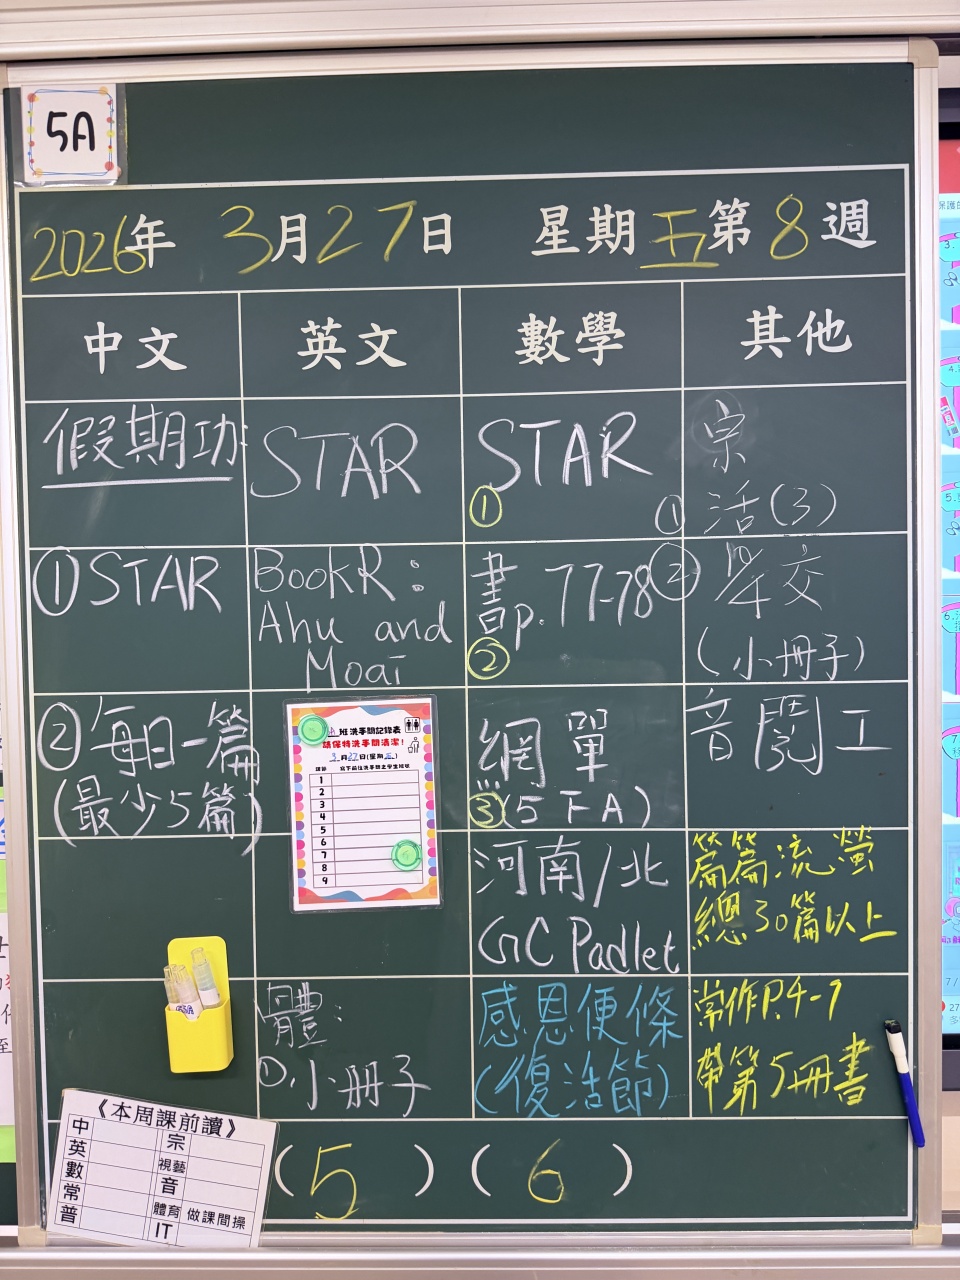 5A
2026年 3月27日 星期五第8週
中文 英文 數學 其他
假期功
①STAR
②每日一篇
(最少5篇)
STAR
BookR:
Ahu and
Moai
體:
①小冊子
STAR
①
書p.77-78
②
網單
③(5下A)
河南/北
GC Padlet
感恩便條
(復活節)
宗
①活(3)
②學交
(小冊子)
音閱工
篇篇流螢
總30篇以上
常作P.4-7
帶第5冊書
(5)(6)
班洗手間記錄表
請保持洗手間清潔!
3月27日(星期五)
1
2
3
4
5
6
7
8
9
《本周課前讀》
中 宗
英 視藝
數 音
常 體育 做課間操
普 IT